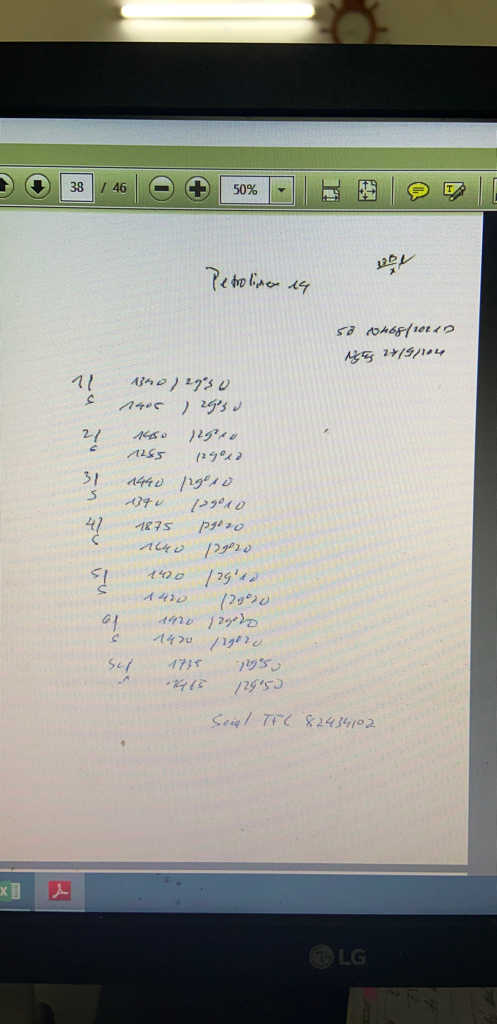 38 / 46
50%
Petrolimex 14
SB 10468/2021D
Ngày 27/9/2021
1/ 1340 / 29°30
S 1405 / 29°30
2/ 1450 / 29°10
S 1255 / 29°10
3/ 1440 / 29°10
S 1370 / 29°10
4/ 1875 / 29°20
S 1640 / 29°20
5/ 1420 / 29°10
S 1420 / 29°20
6/ 1420 / 29°20
S 1420 / 29°20
1735 / 29°50
1465 / 29°50
Seial TFC 82434102
LG